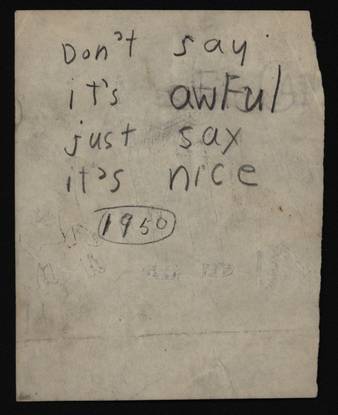 Don't say
it's awFul
just say
it's nice
1950